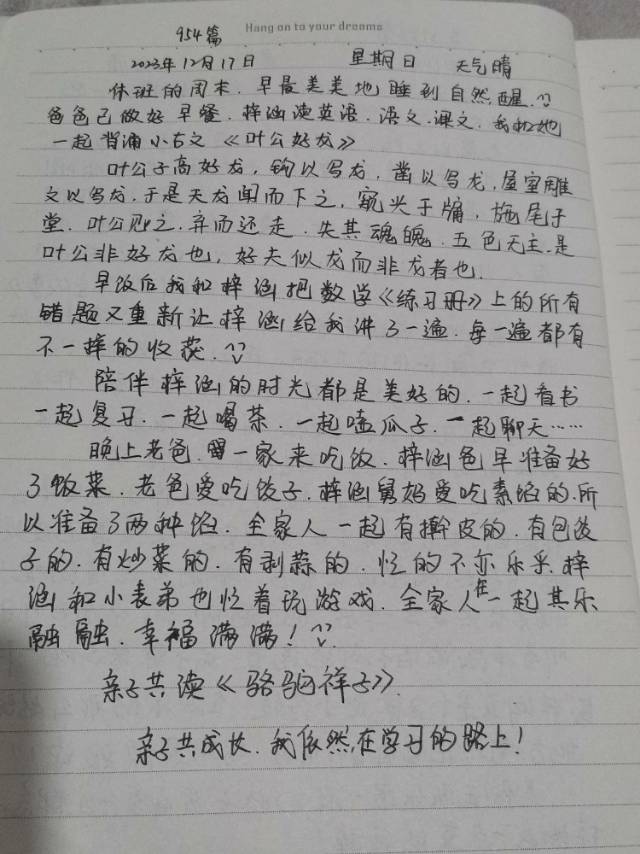 954篇
Hang on to your dreams
2023年12月17日 星期日 天气晴
休班的周末.早晨美美地睡到自然醒.
爸爸已做好早餐.梓涵读英语.语文.课文.我和她
一起背诵小古文《叶公好龙》
叶公子高好龙,钩以写龙,凿以写龙,屋室雕
文以写龙,于是天龙闻而下之,窥头于牖,施尾于
堂.叶公见之.弃而还走.失其魂魄.五色无主.是
叶公非好龙也,好夫似龙而非龙者也.
早饭后我和梓涵把数学《练习册》上的所有
错题又重新让梓涵给我讲了一遍.每一遍都有
不一样的收获.
陪伴梓涵的时光都是美好的.一起看书
一起复习.一起喝茶.一起嗑瓜子.一起聊天……
晚上老爸.一家来吃饭.梓涵爸早准备好
了饭菜.老爸爱吃饺子.梓涵舅妈爱吃素馅的.所
以准备了两种馅.全家人一起有擀皮的.有包饺
子的.有炒菜的.有剥蒜的.忙的不亦乐乎.梓
涵和小表弟也忙着玩游戏.全家人在一起其乐
融融.幸福满满!
亲子共读《骆驼祥子》.
亲子共成长.我依然在学习的路上!